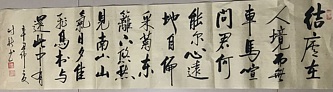 結廬在
人境而無
車馬喧
問君何
能尔心遠
地自偏
采菊東
籬下悠然
見南山山
氣日夕佳
飛鳥相与
還此中有